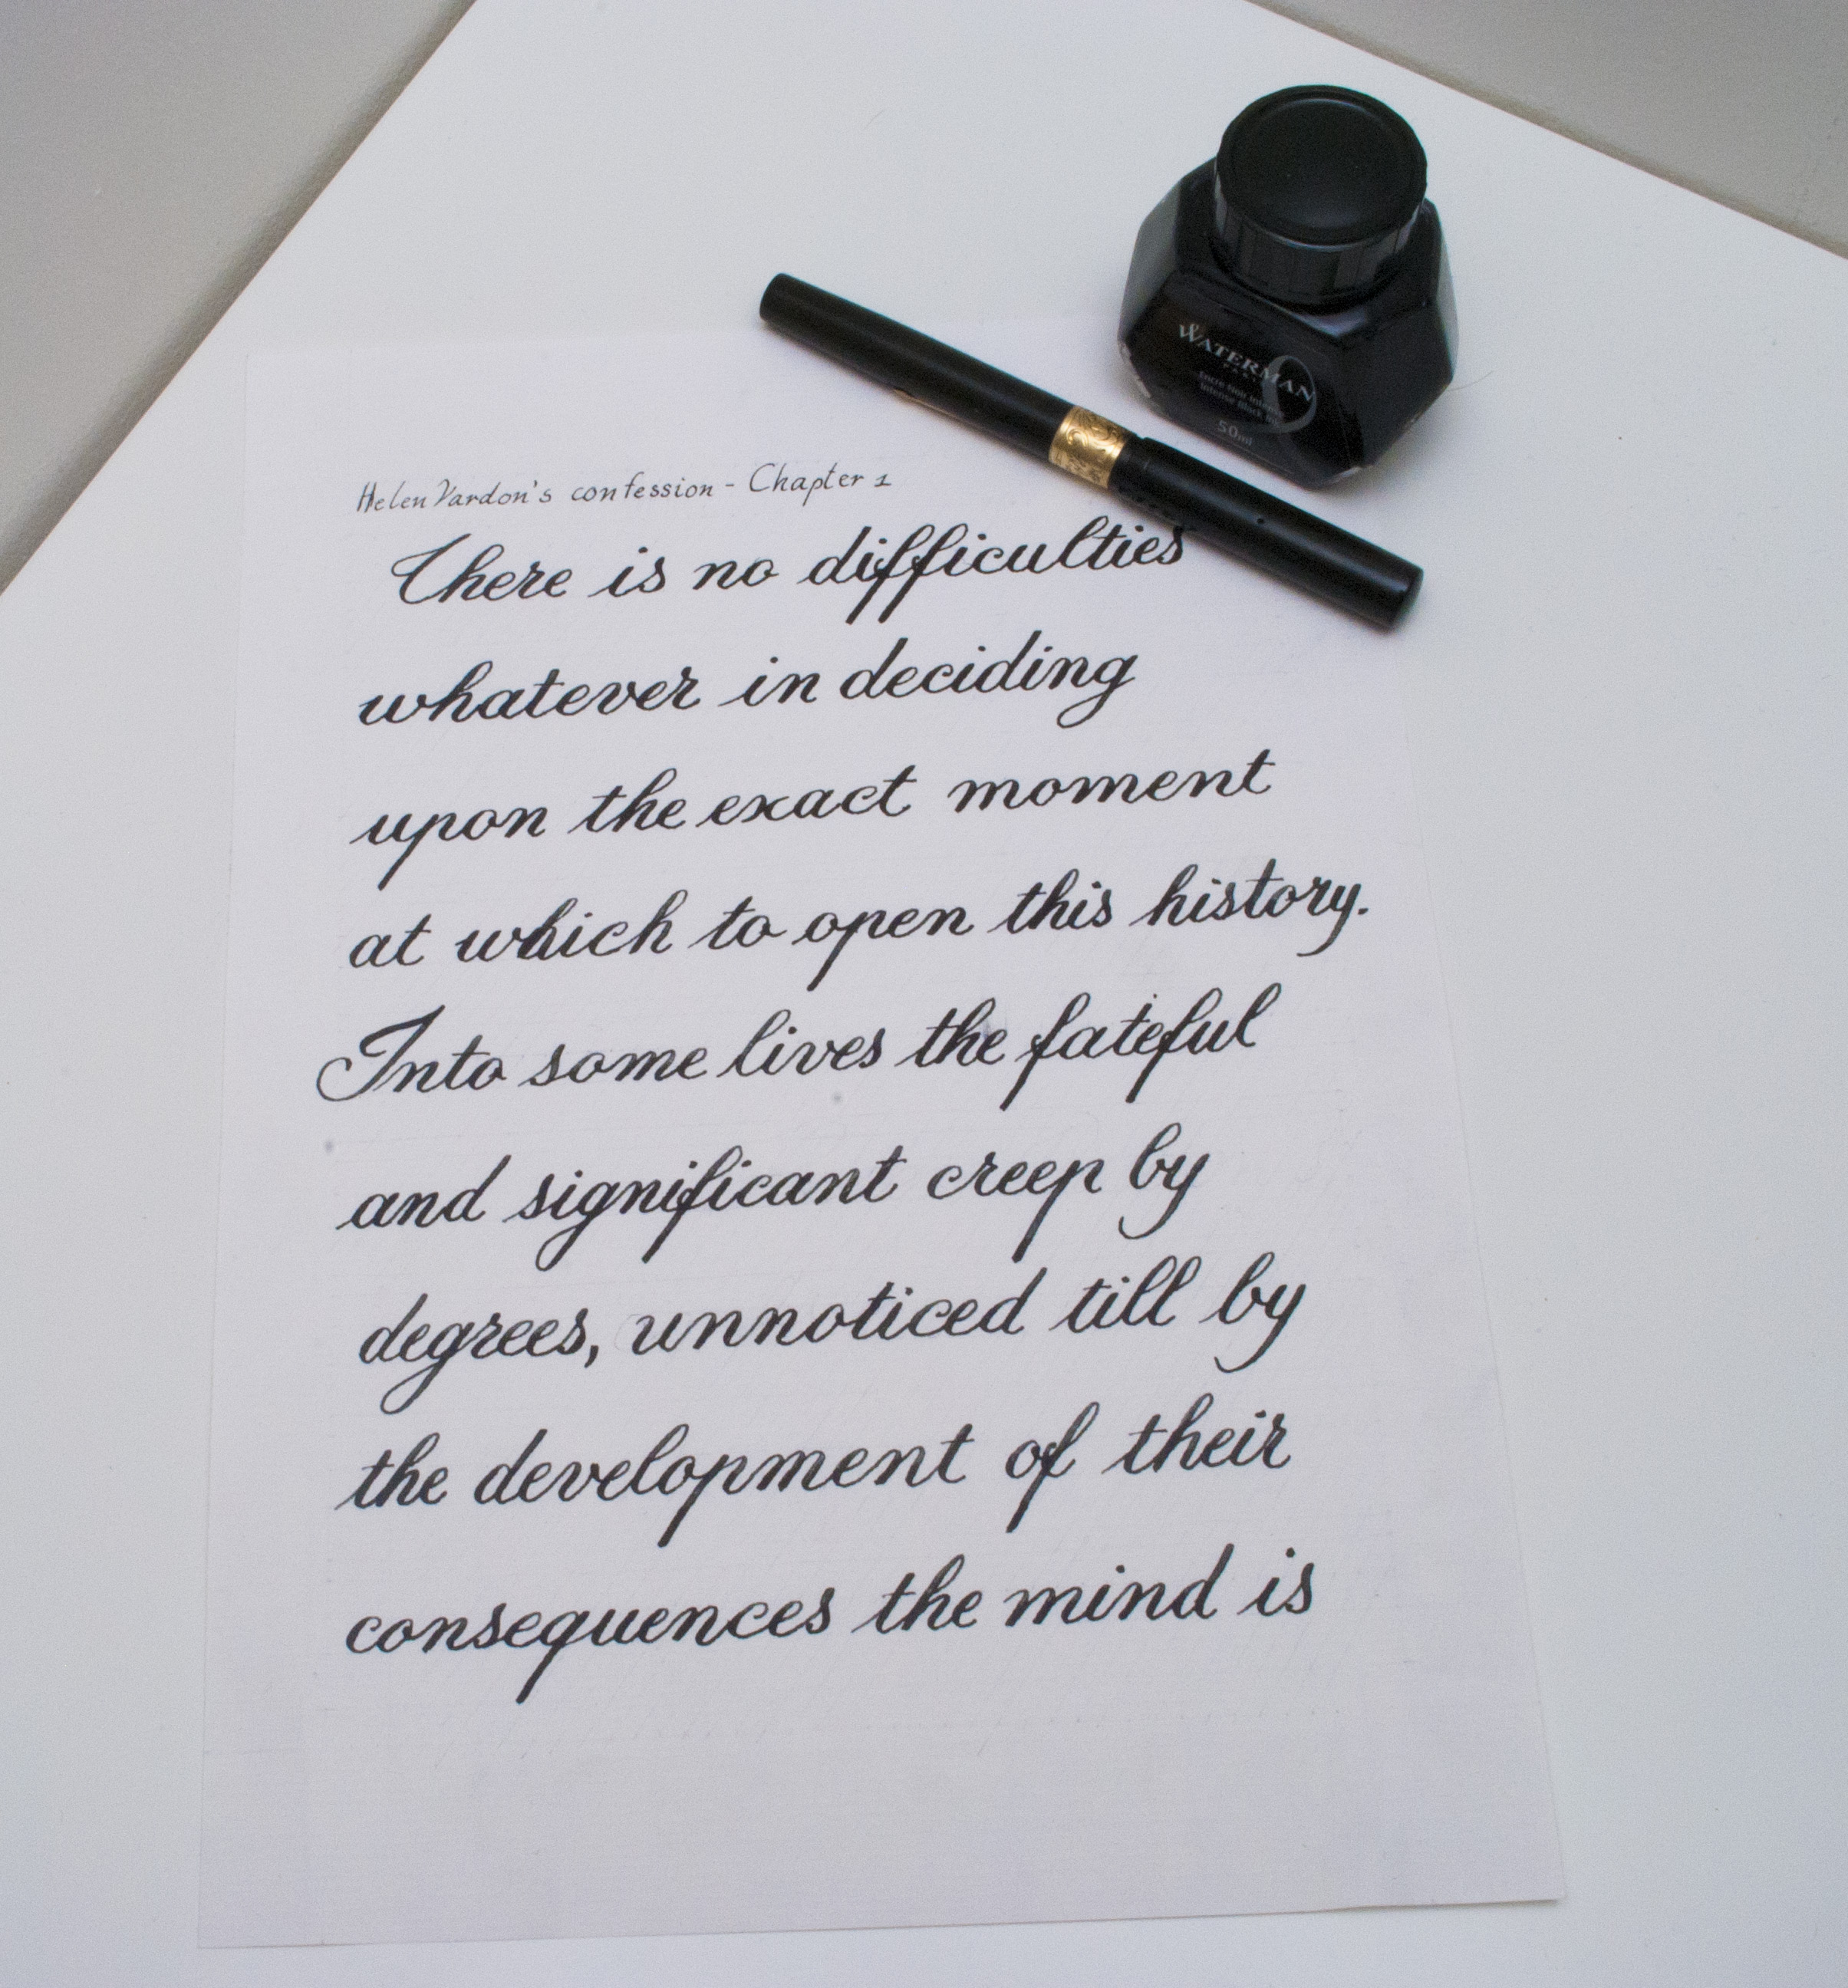 WATERMAN
PARIS
Encre Noir Intense
Intense Black Ink
50ml
Helen Vardon's confession - Chapter 1
There is no difficulties
whatever in deciding
upon the exact moment
at which to open this history.
Into some lives the fateful
and significant creep by
degrees, unnoticed till by
the development of their
consequences the mind is